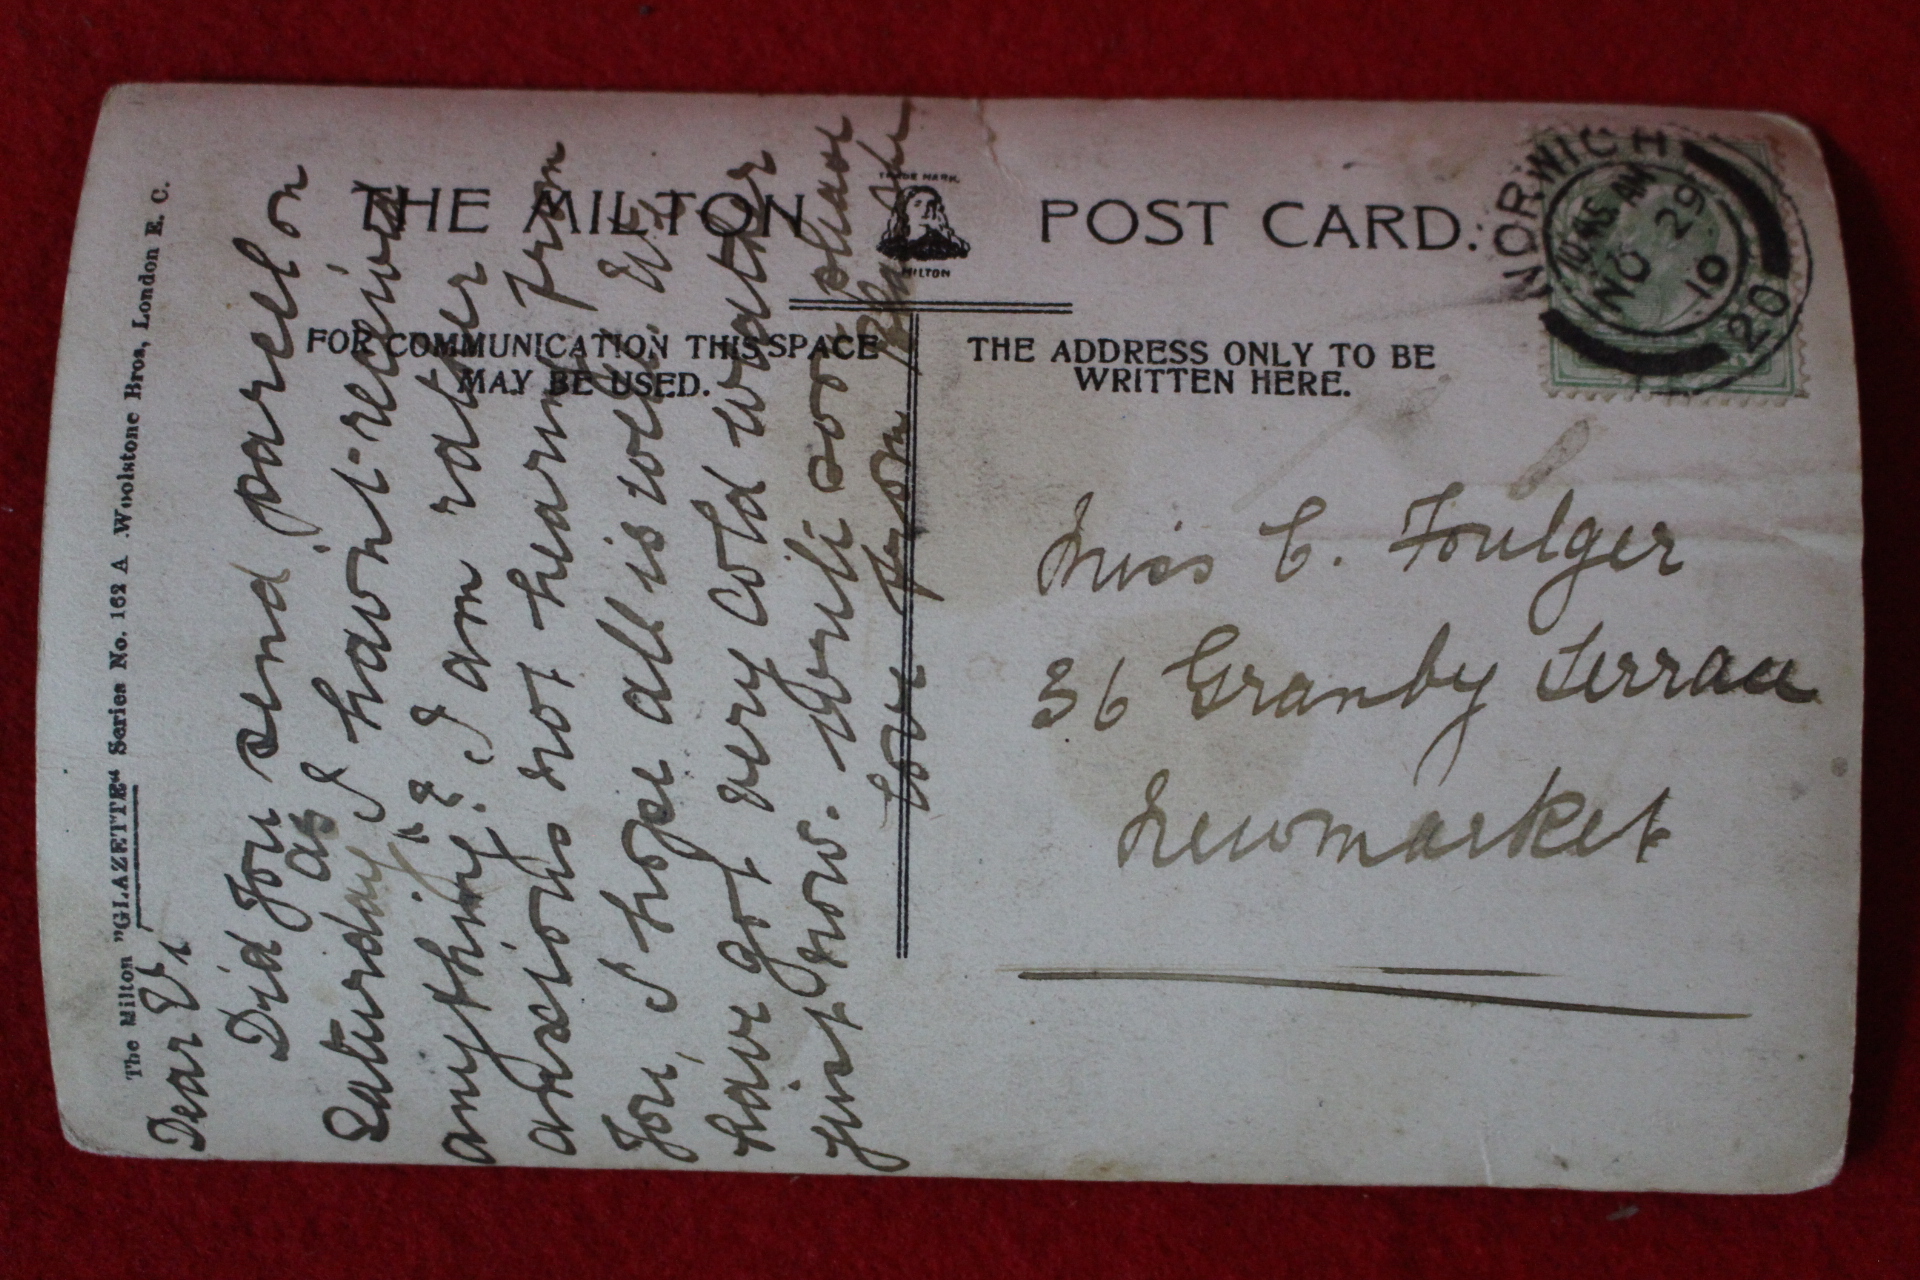 The Milton "GLAZETTE" Series No. 162 A. Woolstone Bros, London E. C.
THE MILTON
TRADE MARK.
MILTON
POST CARD.
FOR COMMUNICATION THIS SPACE
MAY BE USED.
THE ADDRESS ONLY TO BE
WRITTEN HERE.
NORWICH
10.45 AM
NO 29
10
20
Dear Vi
Did you send parcel on
Saturday as I havnt received
anything? I am rather
anxious not hearing from
you, I hope all is well. We
have got very cold weather
just now. write soon please
love from
Miss C. Foulger
36 Granby Terrace
Newmarket